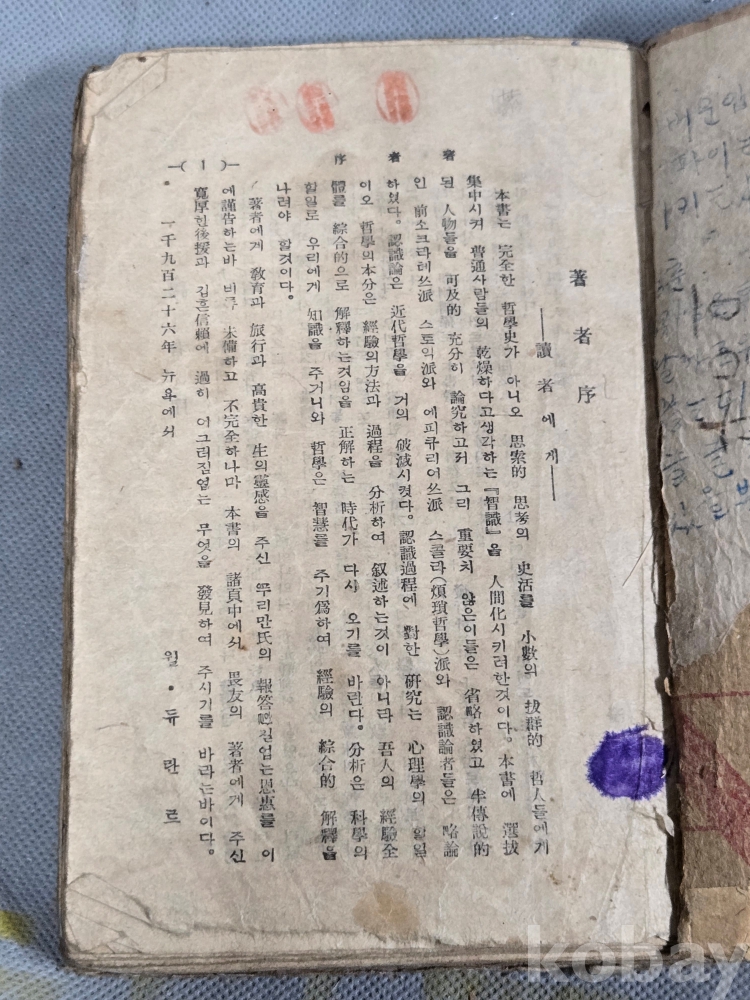 著者序
──讀者에게──
本書는 完全한 哲學史가 아니오 思索的 思考의 史活를 小數의 拔群的 哲人들에게
集中시켜 普通사람들의 乾燥하다고생각하는『智識』을 人間化시키려한것이다. 本書에 選拔
된 人物들을 可及的 充分히 論究하고저 그리 重要치 않은이들은 省略하였고 半傳說的
인 前소크라테쓰派 스토익派와 에피큐리어쓰派 스콜라(煩瑣哲學)派와 認識論者들은 略論
하였다. 認識論은 近代哲學을 거의 破滅시켰다. 認識過程에 對한 研究는 心理學의 할일
이오 哲學의本分은 經驗의方法과 過程을 分析하여 叙述하는것이 아니라 吾人의 經驗全
體를 綜合的으로 解釋하는것임을 正解하는 時代가 다시 오기를 바란다. 分析은 科學의
할일로 우리에게 知識을 주거니와 哲學은 智慧를 주기爲하여 經驗의 綜合的 解釋을
나려야 할것이다.
著者에게 敎育과 旅行과 高貴한 生의靈感을 주신 뿌리만氏의 報答할길업는恩惠를 이
에謹告하는바 비록 未備하고 不完全하나마 本書의 諸頁中에서 畏友의 著者에게 주신
寬厚한後援과 깁흔信賴에 過히 어그러짐없는 무엇을 發見하여 주시기를 바라는바이다.
一千九百二十六年 뉴욕에서
윌・듀란르
著者序
─( 1 )─
kobay